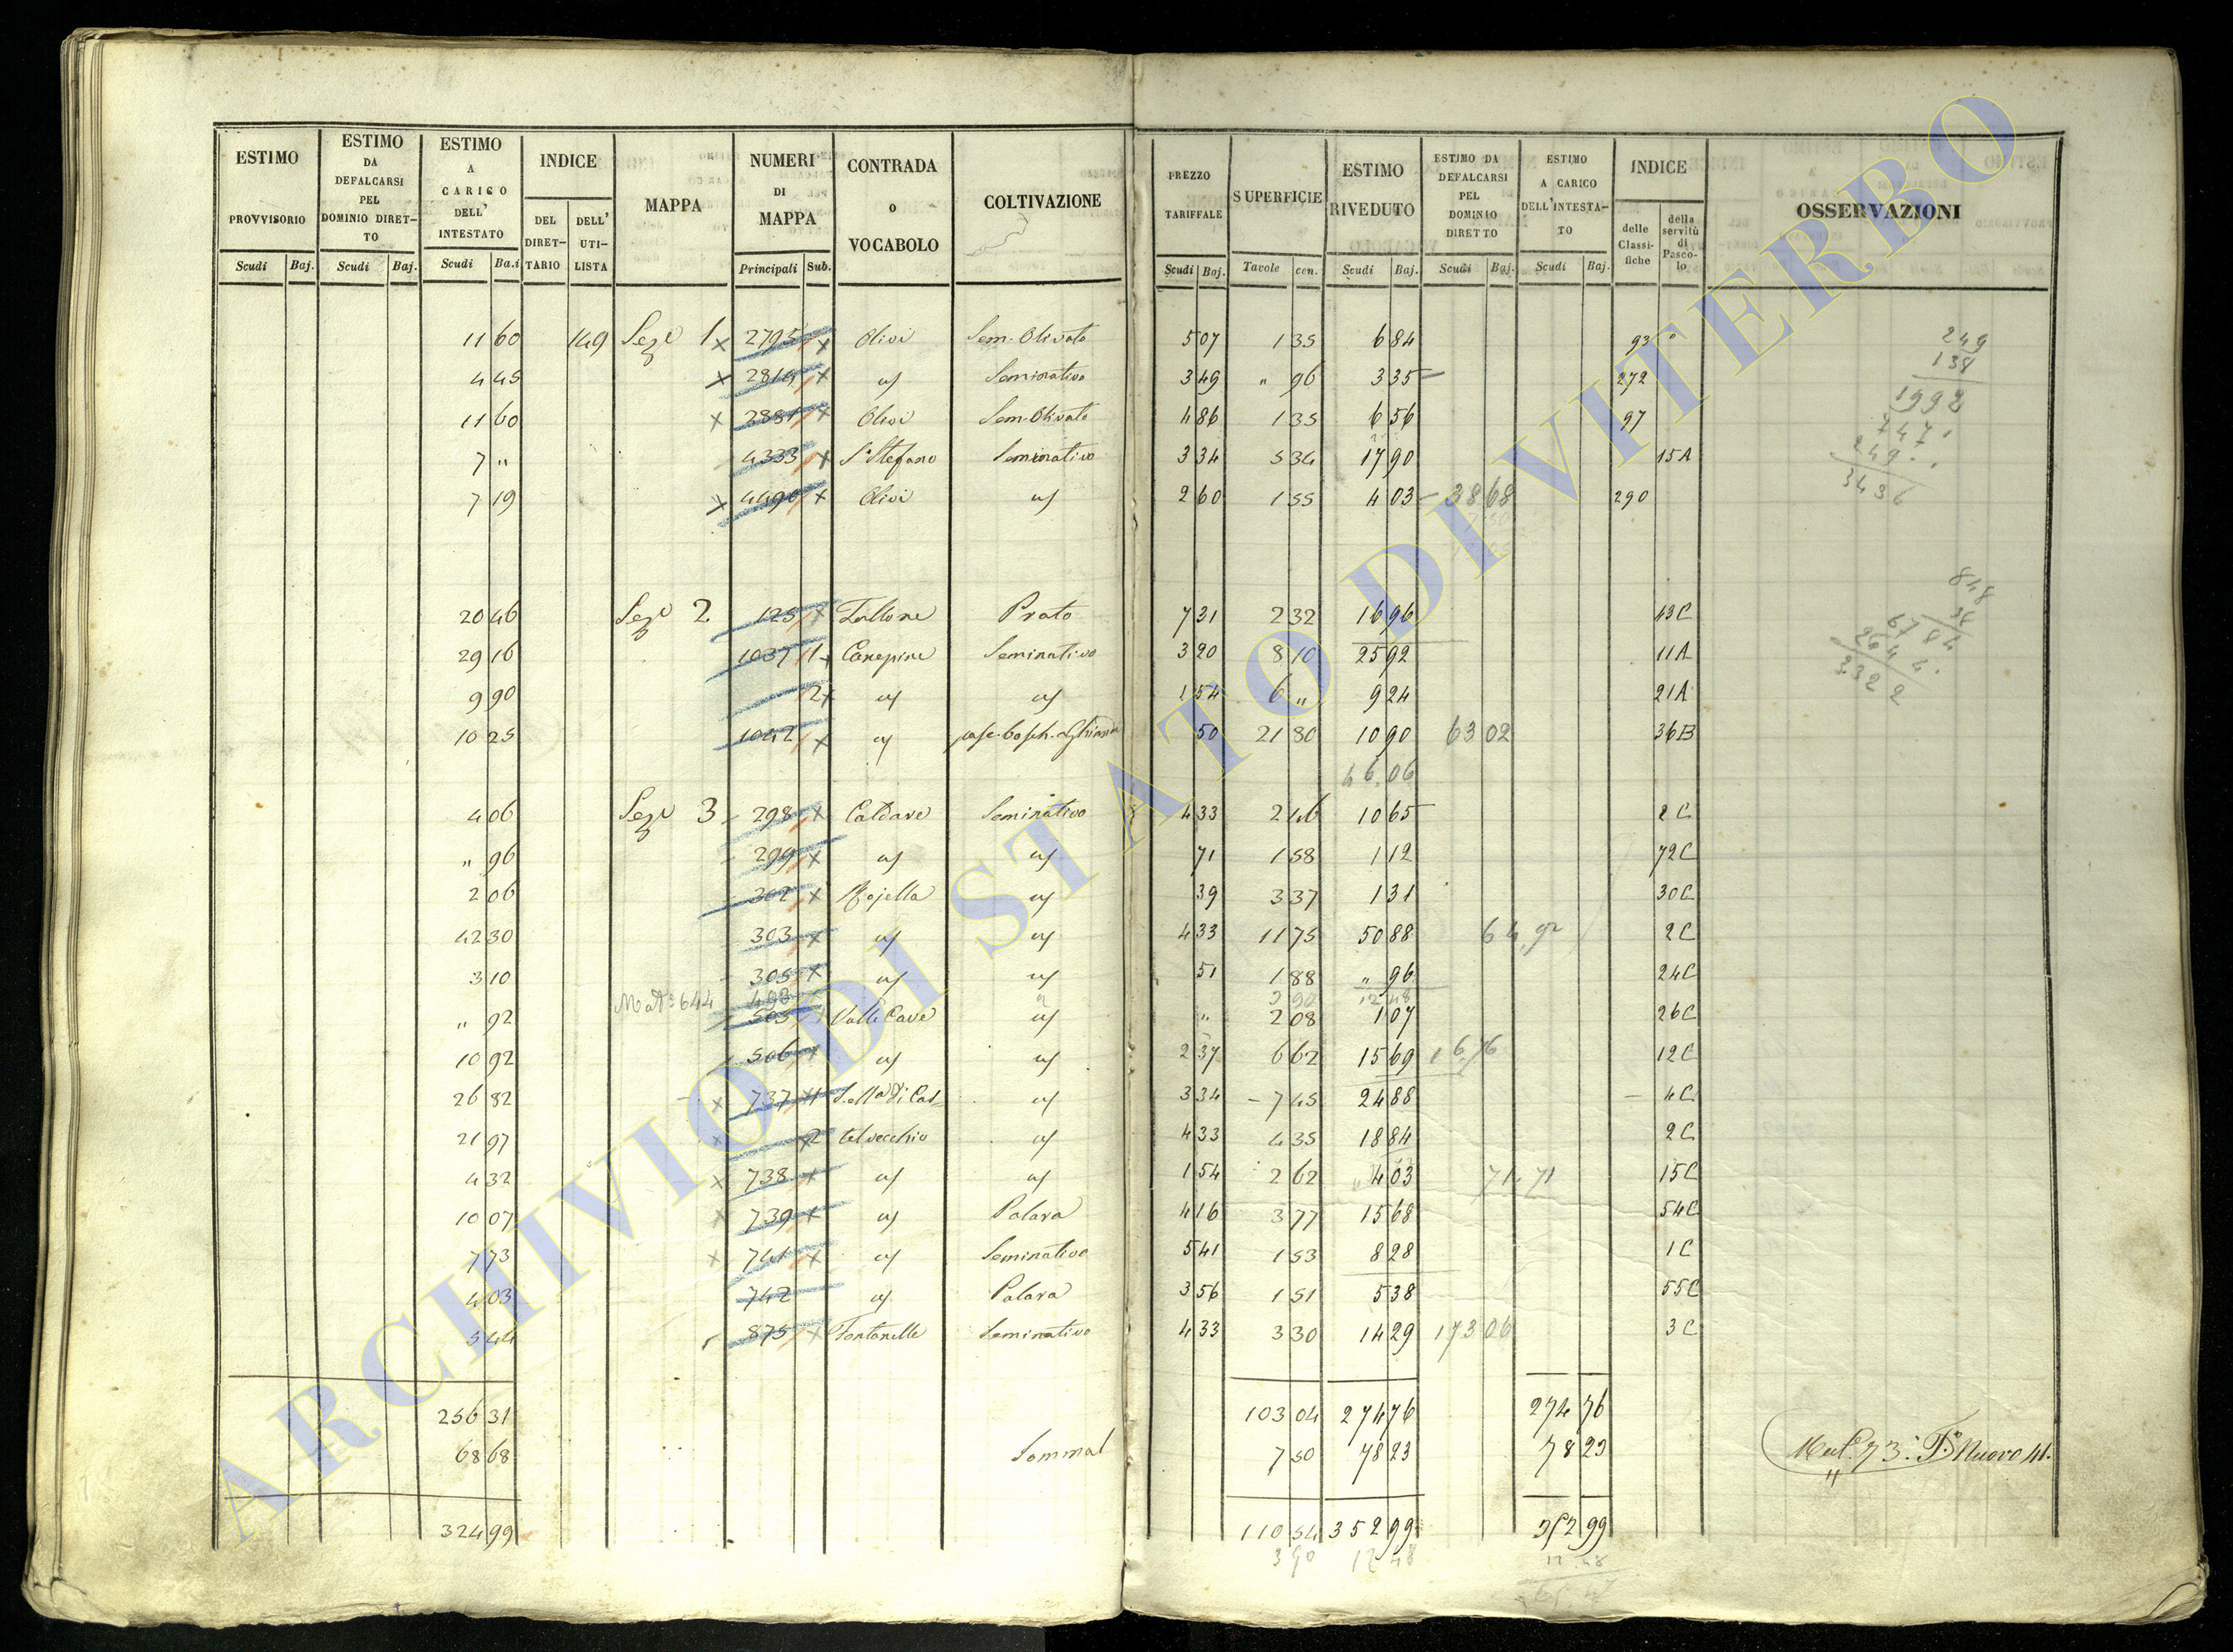 ESTIMO PROVVISORIO
ESTIMO DA DEFALCARSI PEL DOMINIO DIRETTO
ESTIMO A CARICO DELL' INTESTATO
INDICE
DEL DIRETTARIO
DELL' UTILISTA
MAPPA
NUMERI DI MAPPA
CONTRADA O VOCABOLO
COLTIVAZIONE
PREZZO TARIFFALE
SUPERFICIE
ESTIMO RIVEDUTO
ESTIMO DA DEFALCARSI PEL DOMINIO DIRETTO
ESTIMO A CARICO DELL'INTESTATO
INDICE
delle Classifiche
della servitù di Pascolo
OSSERVAZIONI
Scudi Baj. Scudi Baj. Scudi Ba.i Principali Sub. Scudi Baj. Tavole cen. Scudi Baj. Scudi Baj. Scudi Baj.
11 60 149 Seze 1 2795 Olivi Sem. Olivato 5 07 1 35 6 84 93
4 45 2814 Seminativo 3 49 " 96 3 35 272
11 60 2881 Olivi Sem. Olivato 4 86 1 35 6 56 97
7 " 4333 S. Stefano Seminativo 3 34 5 34 17 90 15A
7 19 4490 Olivi 2 60 1 55 4 03 38 68 290
249
138
1992
747
249
3436
20 46 Seze 2 125 Prato 7 31 2 32 16 96 43C
29 16 1037 1 Canepine Seminativo 3 20 8 10 25 92 11A
9 90 2 1 54 6 " 9 24 21A
10 25 1042 50 21 80 10 90 63 02 36B
848
36
46.06
4 06 Seze 3 298 Caldare Seminativo 4 33 2 46 10 65 2C
" 96 299 71 1 58 1 12 72C
2 06 302 Mojella 39 3 37 1 31 30C
42 30 303 4 33 11 75 50 88 64.92 2C
3 10 305 51 1 88 " 96 24C
644 498 3 90 12 48
" 92 505 Valle Cave " 2 08 1 07 26C
10 92 506 2 37 6 62 15 69 16.76 12C
26 82 737 1 3 34 7 45 24 88 4C
21 97 2 telvecchio 4 33 4 35 18 84 2C
4 32 738 1 54 2 62 4 03 71.71 15C
10 07 739 Palara 4 16 3 77 15 68 54C
7 73 741 Seminativo 5 41 1 53 8 28 1C
4 03 742 Palara 3 56 1 51 5 38 55C
5 44 875 Fontanelle Seminativo 4 33 3 30 14 29 173 06 3C
256 31 103 04 274 76 274 76
68 68 Sommal 7 50 78 23 78 23 73. Nuovo 41.
324 99 110 54 352 99 352 99
3 90 12 48 12.48
ARCHIVIO DI STATO DI VITERBO